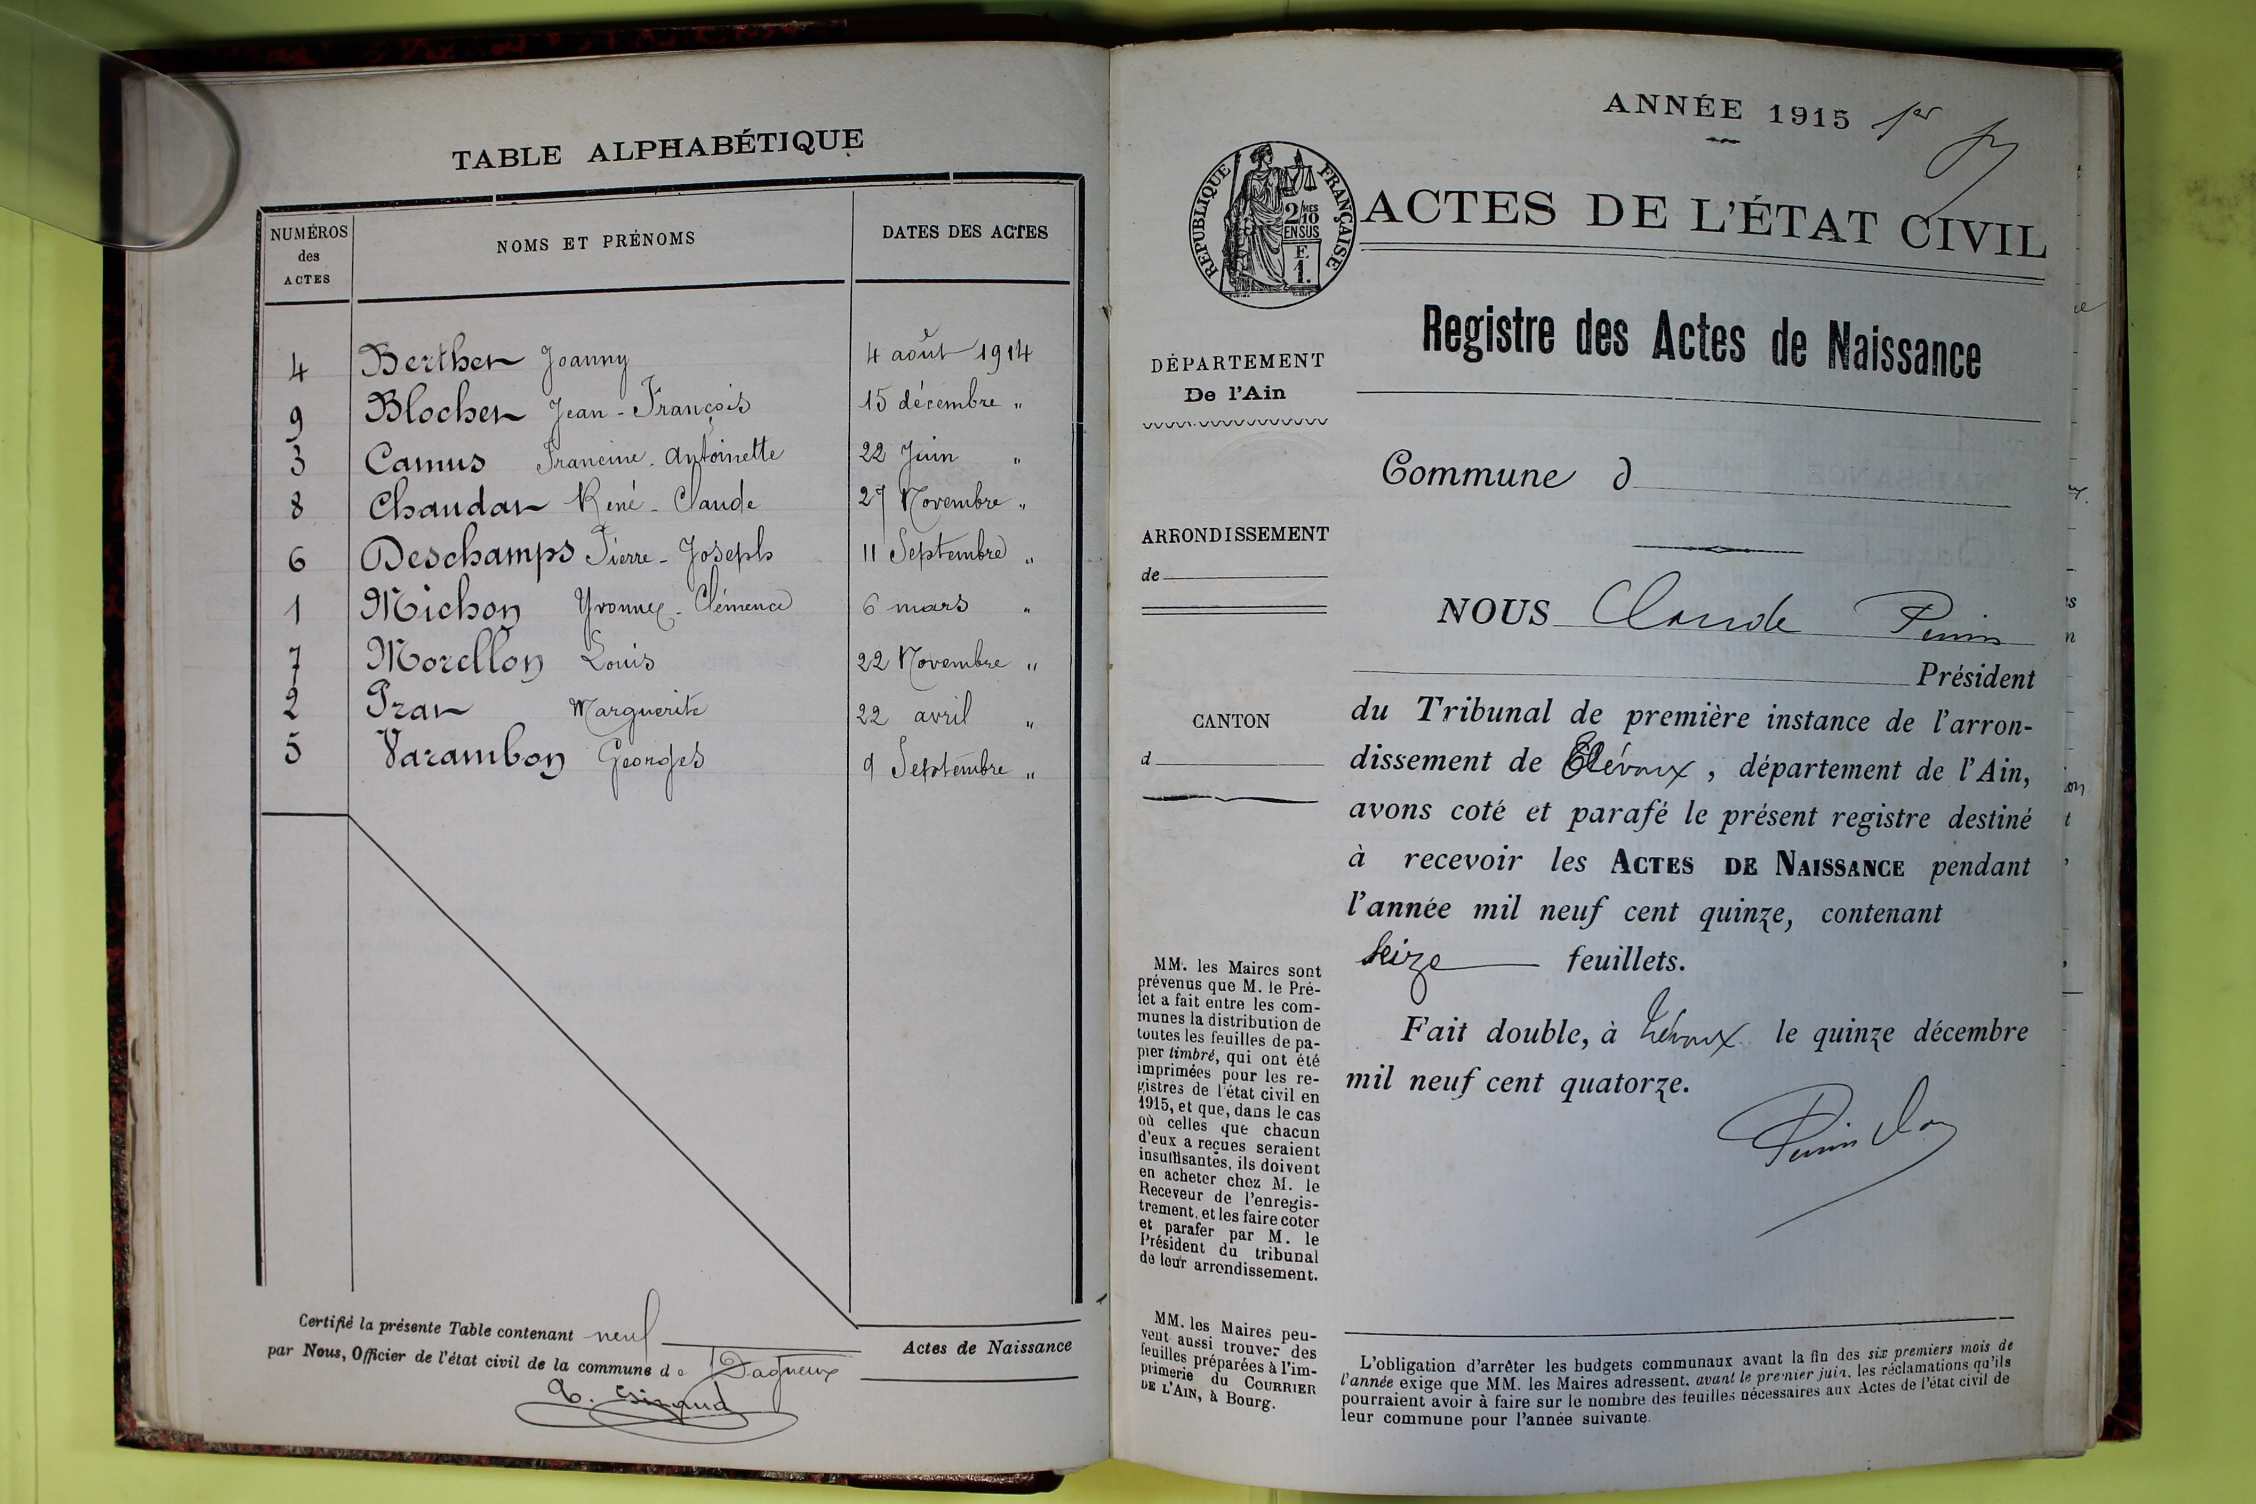 TABLE ALPHABÉTIQUE
NUMÉROS des ACTES
NOMS ET PRÉNOMS
DATES DES ACTES
4 Berthet Joanny 4 août 1914
9 Blochet Jean-François 15 décembre "
3 Camus Francine-Antoinette 22 Juin "
8 Chaudat René-Claude 27 Novembre "
6 Deschamps Pierre-Joseph 11 Septembre "
1 Michon Yvonne-Clémence 6 mars "
7 Morellon Louis 22 Novembre "
2 Prat Marguerite 22 avril "
5 Varambon Georges 9 Septembre "
Certifié la présente Table contenant neuf Actes de Naissance
par Nous, Officier de l'état civil de la commune de Dagneux
ANNÉE 1915 1er
RÉPUBLIQUE FRANÇAISE
2/10 MES
EN SUS
F.
1.
ACTES DE L'ÉTAT CIVIL
Registre des Actes de Naissance
DÉPARTEMENT
De l'Ain
Commune d
ARRONDISSEMENT
de
CANTON
d
NOUS Claude Perrin
Président
du Tribunal de première instance de l'arron-
dissement de Trévoux, département de l'Ain,
avons coté et parafé le présent registre destiné
à recevoir les ACTES DE NAISSANCE pendant
l'année mil neuf cent quinze, contenant
seize feuillets.
Fait double, à Trévoux le quinze décembre
mil neuf cent quatorze.
MM. les Maires sont
prévenus que M. le Pré-
fet a fait entre les com-
munes la distribution de
toutes les feuilles de pa-
pier timbré, qui ont été
imprimées pour les re-
gistres de l'état civil en
1915, et que, dans le cas
où celles que chacun
d'eux a reçues seraient
insuffisantes, ils doivent
en acheter chez M. le
Receveur de l'enregis-
trement, et les faire coter
et parafer par M. le
Président du tribunal
de leur arrondissement.
MM. les Maires peu-
vent aussi trouver des
feuilles préparées à l'im-
primerie du COURRIER
DE L'AIN, à Bourg.
L'obligation d'arrêter les budgets communaux avant la fin des six premiers mois de
l'année exige que MM. les Maires adressent, avant le premier juin, les réclamations qu'ils
pourraient avoir à faire sur le nombre des feuilles nécessaires aux Actes de l'état civil de
leur commune pour l'année suivante.